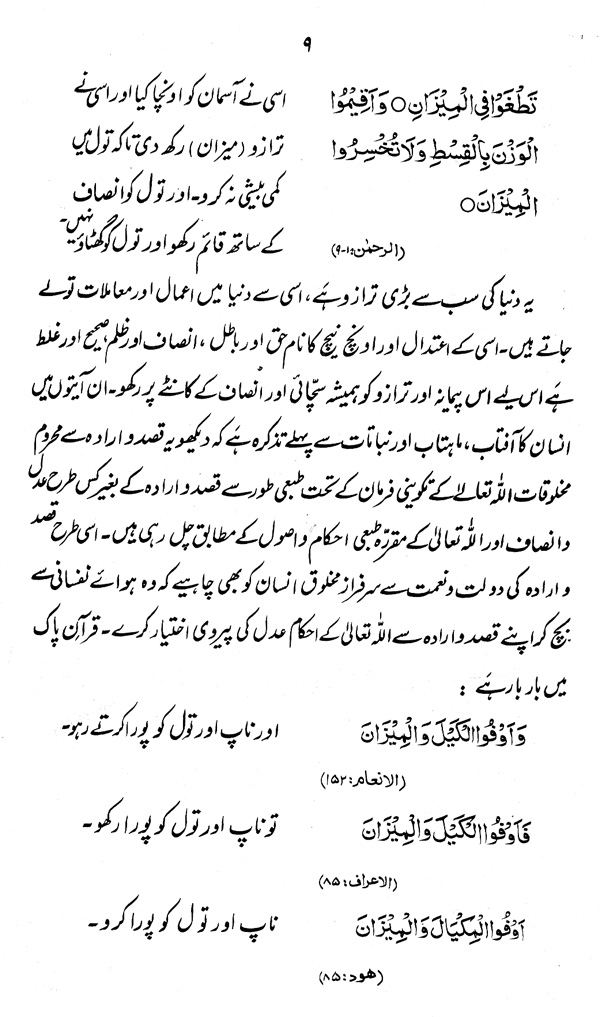 ۹
تَطْغَوْا فِي الْمِيْزَانِ ○ وَاَقِيْمُوا
الْوَزْنَ بِالْقِسْطِ وَلَا تُخْسِرُوا
الْمِيْزَانَ ○
(الرحمٰن: ۱-۹)
اسی نے آسمان کو اونچا کیا اور اسی نے
ترازو (میزان) رکھ دی تاکہ تول میں
کمی بیشی نہ کرو۔ اور تول کو انصاف
کے ساتھ قائم رکھو اور تول کو گھٹاؤ نہیں۔
یہ دنیا کی سب سے بڑی ترازو ہے، اسی سے دنیا میں اعمال اور معاملات تولے
جاتے ہیں۔ اسی کے اعتدال اور اونچ نیچ کا نام حق اور باطل، انصاف اور ظلم، صحیح اور غلط
ہے اس لیے اس پیمانہ اور ترازو کو ہمیشہ سچّائی اور انصاف کے کانٹے پر رکھو۔ ان آیتوں میں
انسان کا آفتاب، ماہتاب اور نباتات سے پہلے تذکرہ ہے کہ دیکھو یہ قصد و ارادہ سے محروم
مخلوقات اللہ تعالےٰ کے تکوینی فرمان کے تحت طبعی طور سے قصد و ارادہ کے بغیر کس طرح عدل
و انصاف اور اللہ تعالیٰ کے مقررّہ طبعی احکام و اصول کے مطابق چل رہی ہیں۔ اسی طرح قصد
و ارادہ کی دولت و نعمت سے سرفراز مخلوق انسان کو بھی چاہیے کہ وہ ہوائے نفسانی سے
بچ کر اپنے قصد و ارادہ سے اللہ تعالیٰ کے احکام عدل کی پیروی اختیار کرے۔ قرآنِ پاک
میں بار بار ہے :
وَاَوْفُوا الْكَيْلَ وَالْمِيْزَانَ اور ناپ اور تول کو پورا کرتے رہو۔
(الانعام: ۱۵۲)
فَاَوْفُوا الْكَيْلَ وَالْمِيْزَانَ تو ناپ اور تول کو پورا رکھو۔
(الاعراف: ۸۵)
اَوْفُوا الْمِكْيَالَ وَالْمِيْزَانَ ناپ اور تول کو پورا کرو۔
(ھود: ۸۵)